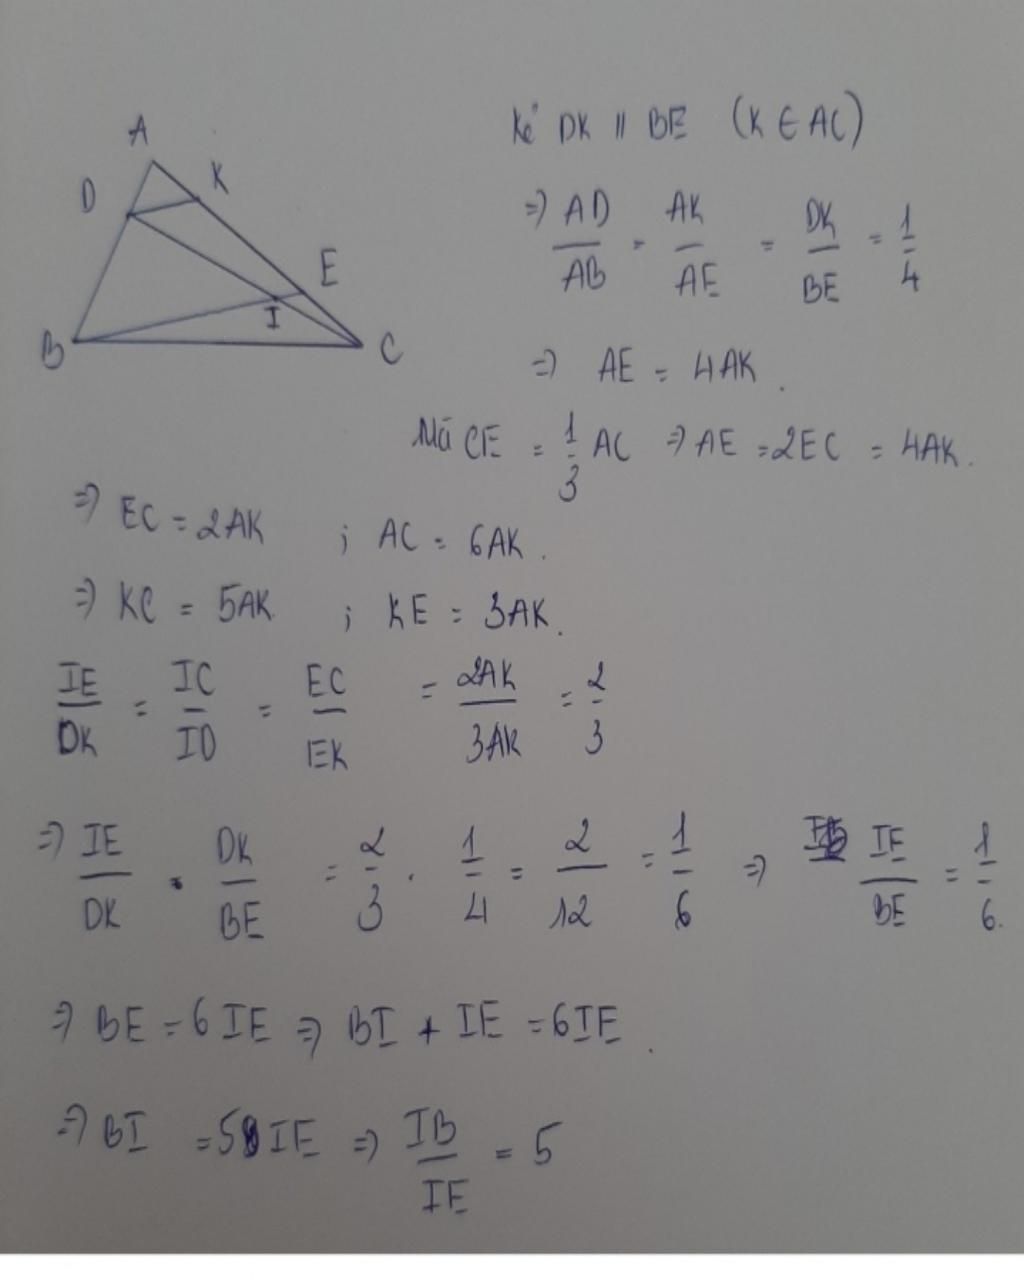 A
K
D
E
I
B
C
Kẻ DK // BE (K ∈ AC)
=> AD/AB = AK/AE = DK/BE = 1/4
=> AE = 4AK.
Mà CE = 1/3 AC => AE = 2EC = 4AK.
=> EC = 2AK ; AC = 6AK.
=> KC = 5AK ; KE = 3AK.
IE/DK = IC/ID = EC/EK = 2AK/3AK = 2/3
=> IE/DK . DK/BE = 2/3 . 1/4 = 2/12 = 1/6 => IE/BE = 1/6.
=> BE = 6IE => BI + IE = 6IE.
=> BI = 5IE => IB/IE = 5